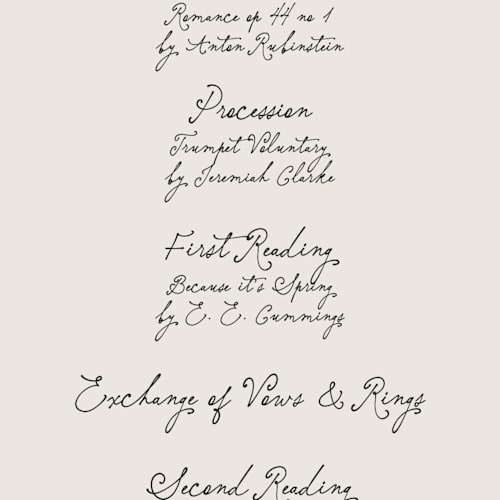 Romance op 44 no 1
by Anton Rubinstein
Procession
Trumpet Voluntary
by Jeremiah Clarke
First Reading
Because it's Spring
by E. E. Cummings
Exchange of Vows & Rings
Second Reading